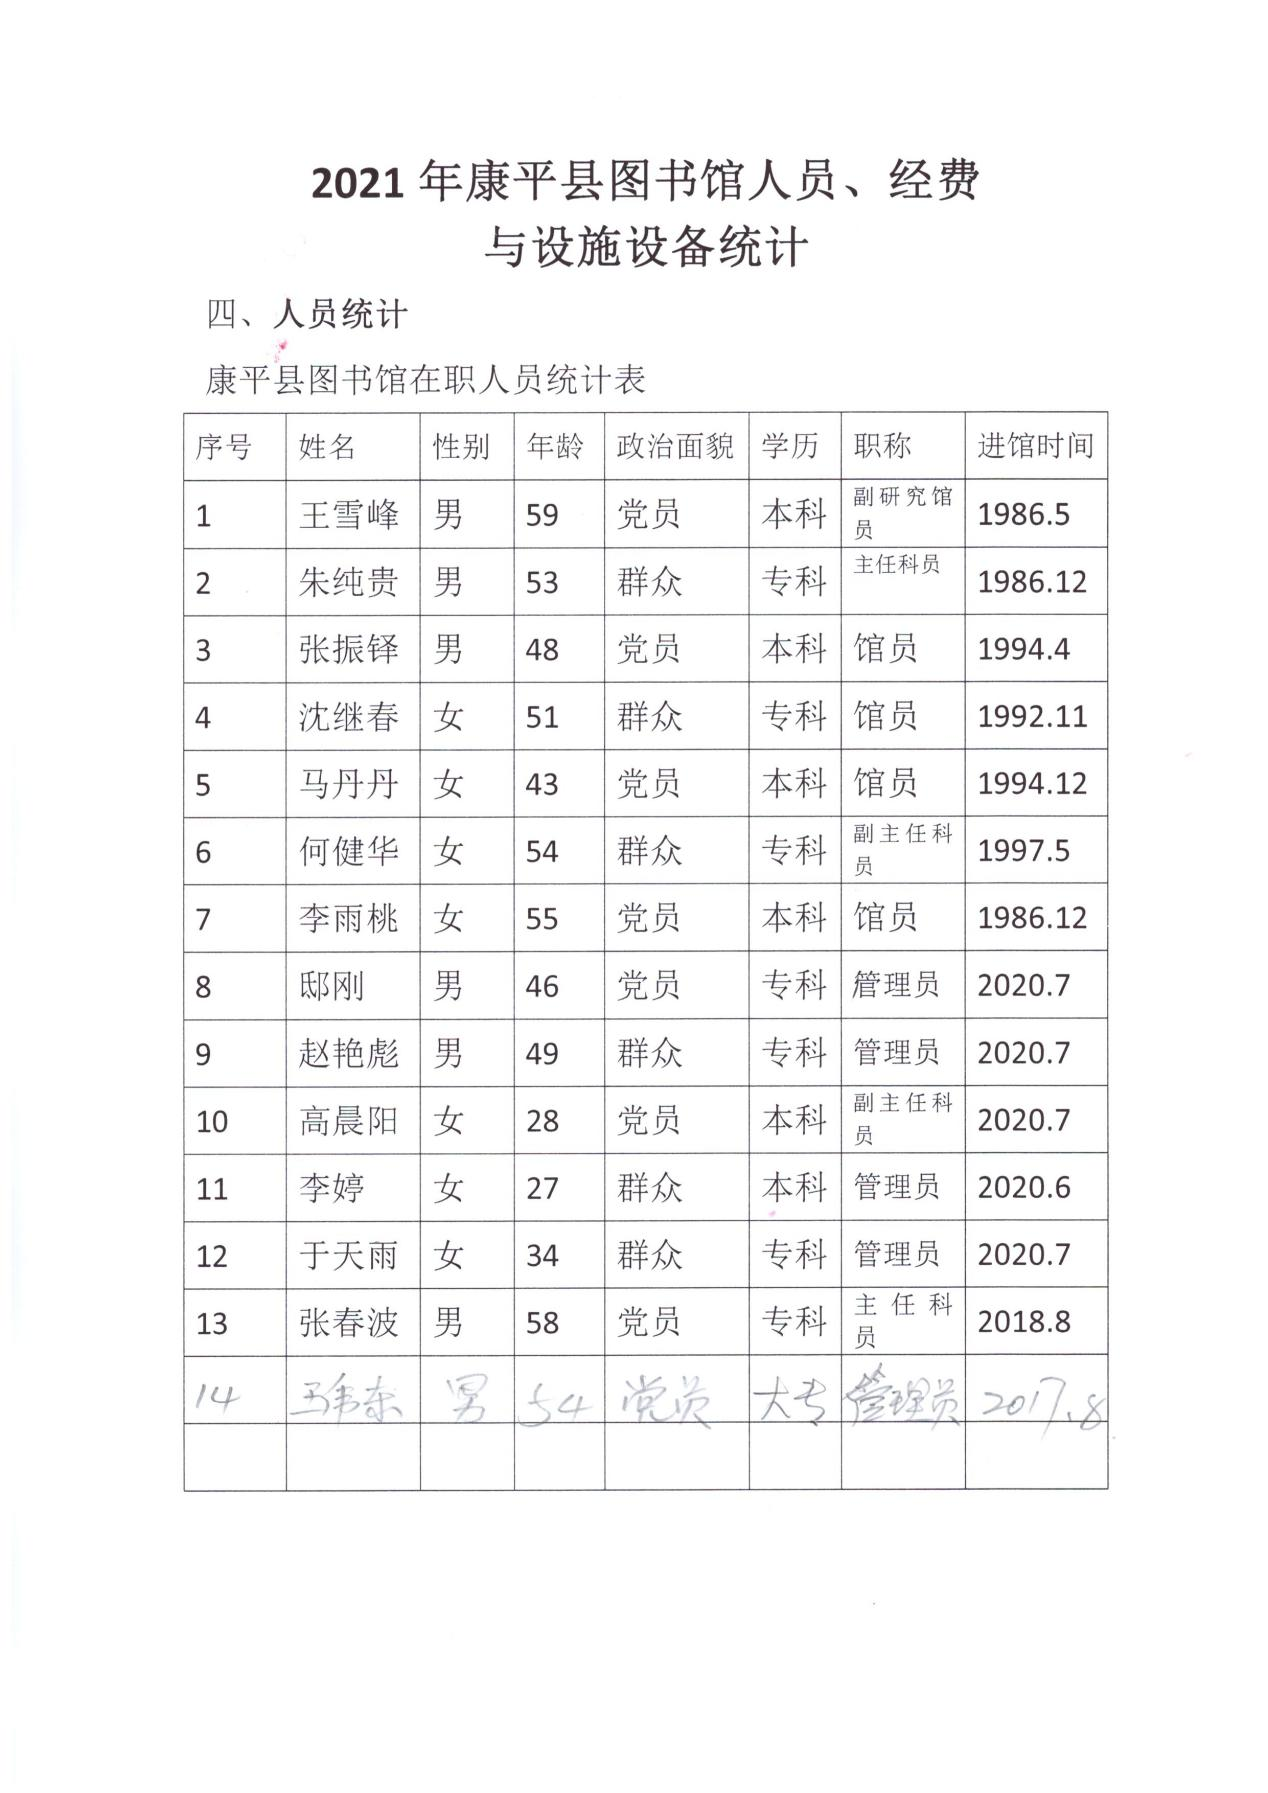 2021年康平县图书馆人员、经费
与设施设备统计
四、人员统计
康平县图书馆在职人员统计表
序号 姓名 性别 年龄 政治面貌 学历 职称 进馆时间
1 王雪峰 男 59 党员 本科 副研究馆员 1986.5
2 朱纯贵 男 53 群众 专科 主任科员 1986.12
3 张振铎 男 48 党员 本科 馆员 1994.4
4 沈继春 女 51 群众 专科 馆员 1992.11
5 马丹丹 女 43 党员 本科 馆员 1994.12
6 何健华 女 54 群众 专科 副主任科员 1997.5
7 李雨桃 女 55 党员 本科 馆员 1986.12
8 邸刚 男 46 党员 专科 管理员 2020.7
9 赵艳彪 男 49 群众 专科 管理员 2020.7
10 高晨阳 女 28 党员 本科 副主任科员 2020.7
11 李婷 女 27 群众 本科 管理员 2020.6
12 于天雨 女 34 群众 专科 管理员 2020.7
13 张春波 男 58 党员 专科 主任科员 2018.8
14 男 54 党员 大专 管理员 2017.8